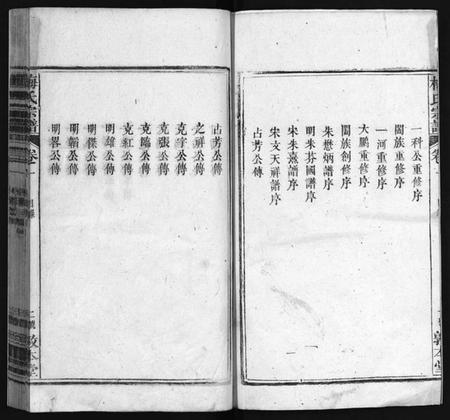 梅氏宗譜
卷一
敦本堂
一科公重修序
閤族重修序
一河重修序
大鵬重修序
閤族創修序
朱懋炳譜序
明朱芬國譜序
宋朱熹譜序
宋文天祥譜序
占芳公傳
占芳公傳
之祥公傳
克宇公傳
克張公傳
克臨公傳
克紅公傳
明雄公傳
明傑公傳
明韜公傳
明畧公傳
梅氏宗譜
卷一
目錄
敦本堂